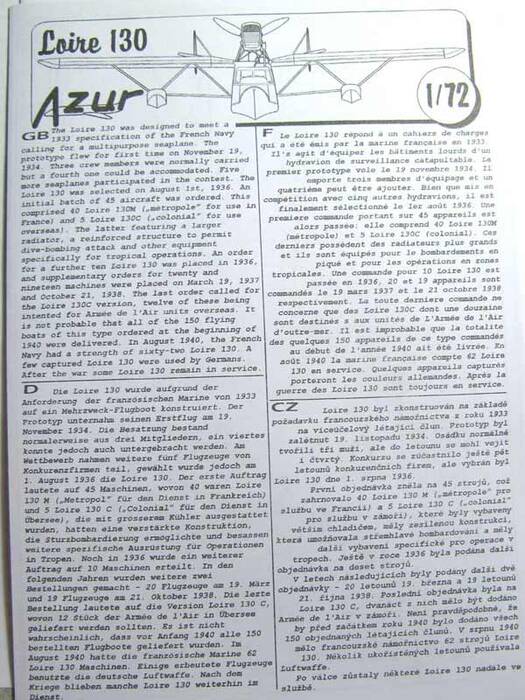 Loire 130
Azur
1/72
GB The Loire 130 was designed to meet a
1933 specification of the French Navy
calling for a multipurpose seaplane. The
prototype flew for first time on November 19,
1934. Three crew members were normally carried
but a fourth one could be accommodated. Five
more seaplanes participated in the contest. The
Loire 130 was selected on August 1st, 1936. An
initial batch of 45 aircraft was ordered. This
comprised 40 Loire 130M („métropole" for use in
France) and 5 Loire 130C („colonial" for use
overseas). The latter featuring a larger
radiator, a reinforced structure to permit
dive-bombing attack and other equipment
specifically for tropical operations. An order
for a further ten Loire 130 was placed in 1936,
and supplementary orders for twenty and
nineteen machines were placed on March 19, 1937
and October 21, 1938. The last order called for
the Loire 130C version, twelve of these being
intended for Armée de l'Air units overseas. It
is not probable that all of the 150 flying
boats of this type ordered at the beginning of
1940 were delivered. In August 1940, the French
Navy had a strength of sixty-two Loire 130. A
few captured Loire 130 were used by Germans.
After the war some Loire 130 remain in service.
F Le Loire 130 répond à un cahiers de charges
qui a été émis par la marine française en 1933.
Il s'agit d'équiper les bâtiments lourds d'un
hydravion de surveillance catapultable. Le
premier prototype vole le 19 novembre 1934. Il
emporte trois membres d'équipage et un
quatrième peut être ajouter. Bien que mis en
compétition avec cinq autres hydravions, il est
finalement sélectionné le 1er août 1936. Une
première commande portant sur 45 appareils est
alors passée: elle comprend 40 Loire 130M
(métropole) et 5 Loire 130C (colonial). Ces
derniers possèdent des radiateurs plus grands
et ils sont équipés pour le bombardements en
piqué et pour les opérations en zones
tropicales. Une commande pour 10 Loire 130 est
passée en 1936, 20 et 19 appareils sont
commandés le 19 mars 1937 et le 21 octobre 1938
respectivement. La toute derniere commande ne
concerne que des Loire 130C dont une douzaine
sont destinés à aux unités de L'Armée de l'Air
d'outre-mer. Il est improbable que la totalité
des quelques 150 appareils de ce type commandés
au début de l'année 1940 ait été livrée. En
août 1940 la marine française compte 62 Loire
130 en service. Quelques appareils capturés
porteront les couleurs allemandes. Après la
guerre des Loire 130 sont toujours en service.
D Die Loire 130 wurde aufgrund der
Anforderung der französischen Marine von 1933
auf ein Mehrzweck-Flugboot konstruiert. Der
Prototyp unternahm seinen Erstflug am 19.
November 1934. Die Besatzung bestand
normalerweise aus drei Mitgliedern, ein viertes
konnte jedoch auch untergebracht werden. Am
Wettbewerb nahmen weitere fünf Flugzeuge von
Konkurenzfirmen teil, gewählt wurde jedoch am
1. August 1936 die Loire 130. Der erste Auftrag
lautete auf 45 Maschinen, wovon 40 waren Loire
130 M („Metropol" für den Dienst in Frankreich)
und 5 Loire 130 C („Colonial" für den Dienst in
Übersee), die mit grosserem Kühler ausgestattet
wurden, hatten eine verstärkte Konstruktion,
die Sturzbombardierung ermöglichte und besassen
weitere spezifische Ausrüstung für Operationen
in Tropen. Noch in 1936 wurde ein weiterer
Auftrag auf 10 Maschinen erteilt. In den
folgenden Jahren wurden weitere zwei
Bestellungen gemacht - 20 Flugzeuge am 19. März
und 19 Flugzeuge am 21. Oktober 1938. Die lezte
Bestellung lautete auf die Version Loire 130 C,
wovon 12 Stück der Armée de l'Air in Übersee
geliefert werden sollten. Es ist nicht
wahrscheinlich, dass vor Anfang 1940 alle 150
bestellten Flugboote geliefert wurden. Im
August 1940 hatte die französische Marine 62
Loire 130 Maschinen. Einige erbeutete Flugzeuge
benutzte die deutsche Luftwaffe. Nach dem
Kriege blieben manche Loire 130 weiterhin im
Dienst.
CZ Loire 130 byl zkonstruován na základě
požadavku francouzského námořnictva z roku 1933
na víceúčelový létající člun. Prototyp byl
zalétnut 19. listopadu 1934. Osádku normálně
tvořili tři muži, ale do letounu se mohl vejít
i čtvrtý. Konkursu se zúčastnilo ještě pět
letounů konkurenčních firem, ale vybrán byl
Loire 130 dne 1. srpna 1936.
První objednávka zněla na 45 strojů, což
zahrnovalo 40 Loire 130 M („métropole" pro
službu ve Francii) a 5 Loire 130 C („colonial"
pro službu v zámoří), které byly vybaveny
větším chladičem, měly zesílenou konstrukci,
která umožňovala střemhlavé bombardování a měly
další vybavení specifické pro operace v
tropech. Ještě v roce 1936 byla podána další
objednávka na deset strojů.
V letech následujících byly podány další dvě
objednávky - 20 letounů 19. března a 19 letounů
21. října 1938. Poslední objednávka byla na
Loire 130 C, dvanáct z nich mělo být dodáno
Armée de l'Air v zámoří. Není pravděpodobné, že
by před začátkem roku 1940 bylo dodáno všech
150 objednaných létajících člunů. V srpnu 1940
mělo francouzské námořnictvo 62 strojů Loire
130. Několik ukořistěných letounů používala
Luftwaffe.
Po válce zůstaly některé Loire 130 nadále ve
službě.